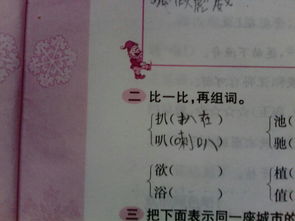 二 比一比,再组词。
扒(扒在) 池(
叭(喇叭) 驰(
欲( ) 植(
浴( ) 值(
三 把下面表示同一座城市的